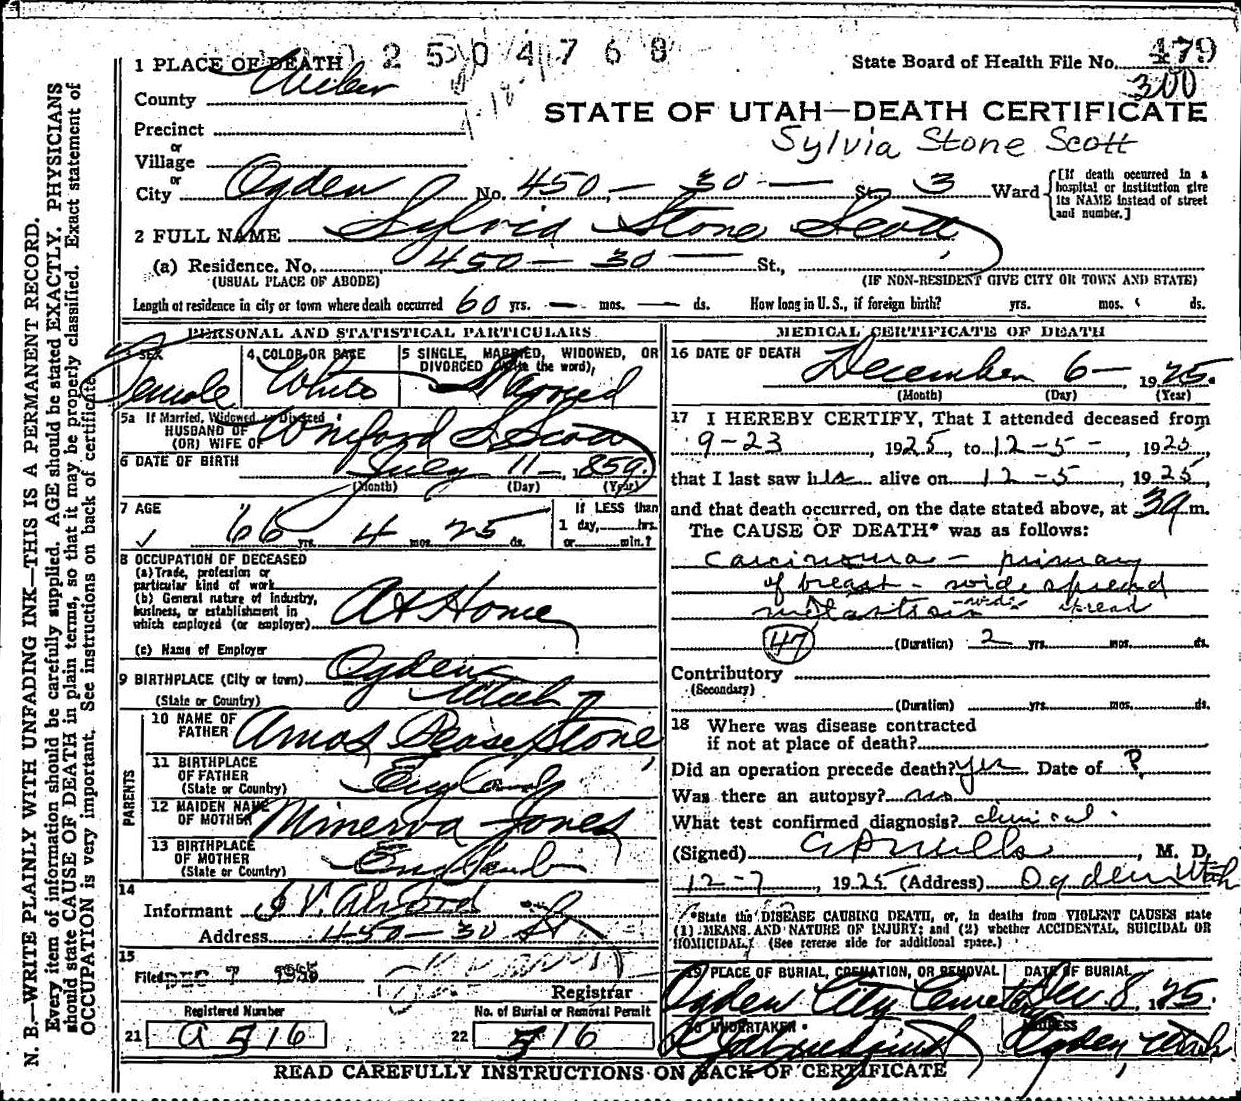 2504768
State Board of Health File No. 479
300
1 PLACE OF DEATH
County Weber
STATE OF UTAH—DEATH CERTIFICATE
Precinct
or
Sylvia Stone Scott
Village
or
City Ogden No. 450 — 30 — St. 3 Ward
[If death occurred in a hospital or institution give its NAME instead of street and number.]
2 FULL NAME Sylvia Stone Scott
(a) Residence. No. 450 — 30 — St.,
(USUAL PLACE OF ABODE) (IF NON-RESIDENT GIVE CITY OR TOWN AND STATE)
Length of residence in city or town where death occurred 60 yrs. — mos. — ds. How long in U.S., if foreign birth? yrs. mos. ds.
PERSONAL AND STATISTICAL PARTICULARS
3 SEX Female
4 COLOR OR RACE White
5 SINGLE, MARRIED, WIDOWED, OR
DIVORCED (write the word),
5a If Married, Widowed or Divorced
HUSBAND OF
(OR) WIFE OF Scott
6 DATE OF BIRTH July 11 — 1859.
(Month) (Day) (Year)
7 AGE 66 yrs. 4 mos. 25 ds.
If LESS than
1 day, hrs.
or min.?
8 OCCUPATION OF DECEASED
(a) Trade, profession or
particular kind of work
(b) General nature of industry,
business, or establishment in
which employed (or employer) At Home
(c) Name of Employer
9 BIRTHPLACE (City or town) Ogden
(State or Country) Utah
PARENTS
10 NAME OF
FATHER Amos Pease Stone
11 BIRTHPLACE
OF FATHER England
(State or Country)
12 MAIDEN NAME
OF MOTHER Minerva Jones
13 BIRTHPLACE
OF MOTHER England
(State or Country)
14
Informant
Address 450 - 30 St
15
Filed DEC 7
Registrar
Registered Number No. of Burial or Removal Permit
21 a 516 22 516
MEDICAL CERTIFICATE OF DEATH
16 DATE OF DEATH December 6 — 1925.
(Month) (Day) (Year)
17 I HEREBY CERTIFY, That I attended deceased from
9-23, 1925, to 12-5-, 1925,
that I last saw h alive on 12-5, 1925,
and that death occurred, on the date stated above, at m.
The CAUSE OF DEATH* was as follows:
Carcinoma — primary
of breast - wide spread
spread
47 (Duration) 2 yrs. mos. ds.
Contributory
(Secondary)
(Duration) yrs. mos. ds.
18 Where was disease contracted
if not at place of death?
Did an operation precede death? yes Date of ?
Was there an autopsy? no
What test confirmed diagnosis? clinical.
(Signed) M. D.
12-7, 1925 (Address) Ogden Utah
*State the DISEASE CAUSING DEATH, or, in deaths from VIOLENT CAUSES state
(1) MEANS AND NATURE OF INJURY; and (2) whether ACCIDENTAL, SUICIDAL OR
HOMICIDAL. (See reverse side for additional space.)
19 PLACE OF BURIAL, CREMATION, OR REMOVAL DATE OF BURIAL
Ogden City Cemetery Dec 8, 1925.
20 UNDERTAKER ADDRESS
Ogden, Utah
READ CAREFULLY INSTRUCTIONS ON BACK OF CERTIFICATE
N. B.—WRITE PLAINLY WITH UNFADING INK—THIS IS A PERMANENT RECORD.
Every item of information should be carefully supplied. AGE should be stated EXACTLY. PHYSICIANS
should state CAUSE OF DEATH in plain terms, so that it may be properly classified. Exact statement of
OCCUPATION is very important. See instructions on back of certificate.